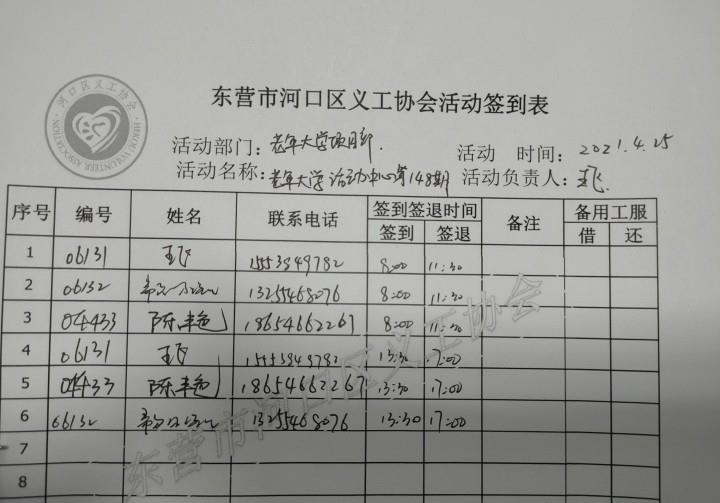 河口区义工协会
HEKOU VOLUNTEER ASSOCIATION
东营市河口区义工协会活动签到表
活动部门：老年大学项目部.
活动 时间：2021.4.25
活动名称：老年大学活动中心第148期 活动负责人：王飞
序号 编号 姓名 联系电话 签到签退时间 备注 备用工服
签到 签退 借 还
1 06131 王飞 15553849782 8:00 11:30
2 06132 13255468076 8:00 11:30
3 04433 陈丰色 18654662267 8:00 11:30
4 06131 王飞 15553849782 13:30 17:00
5 04433 陈丰色 18654662267 13:30 17:00
6 06132 13255468076 13:30 17:00
7
8
东营市河口区义工协会